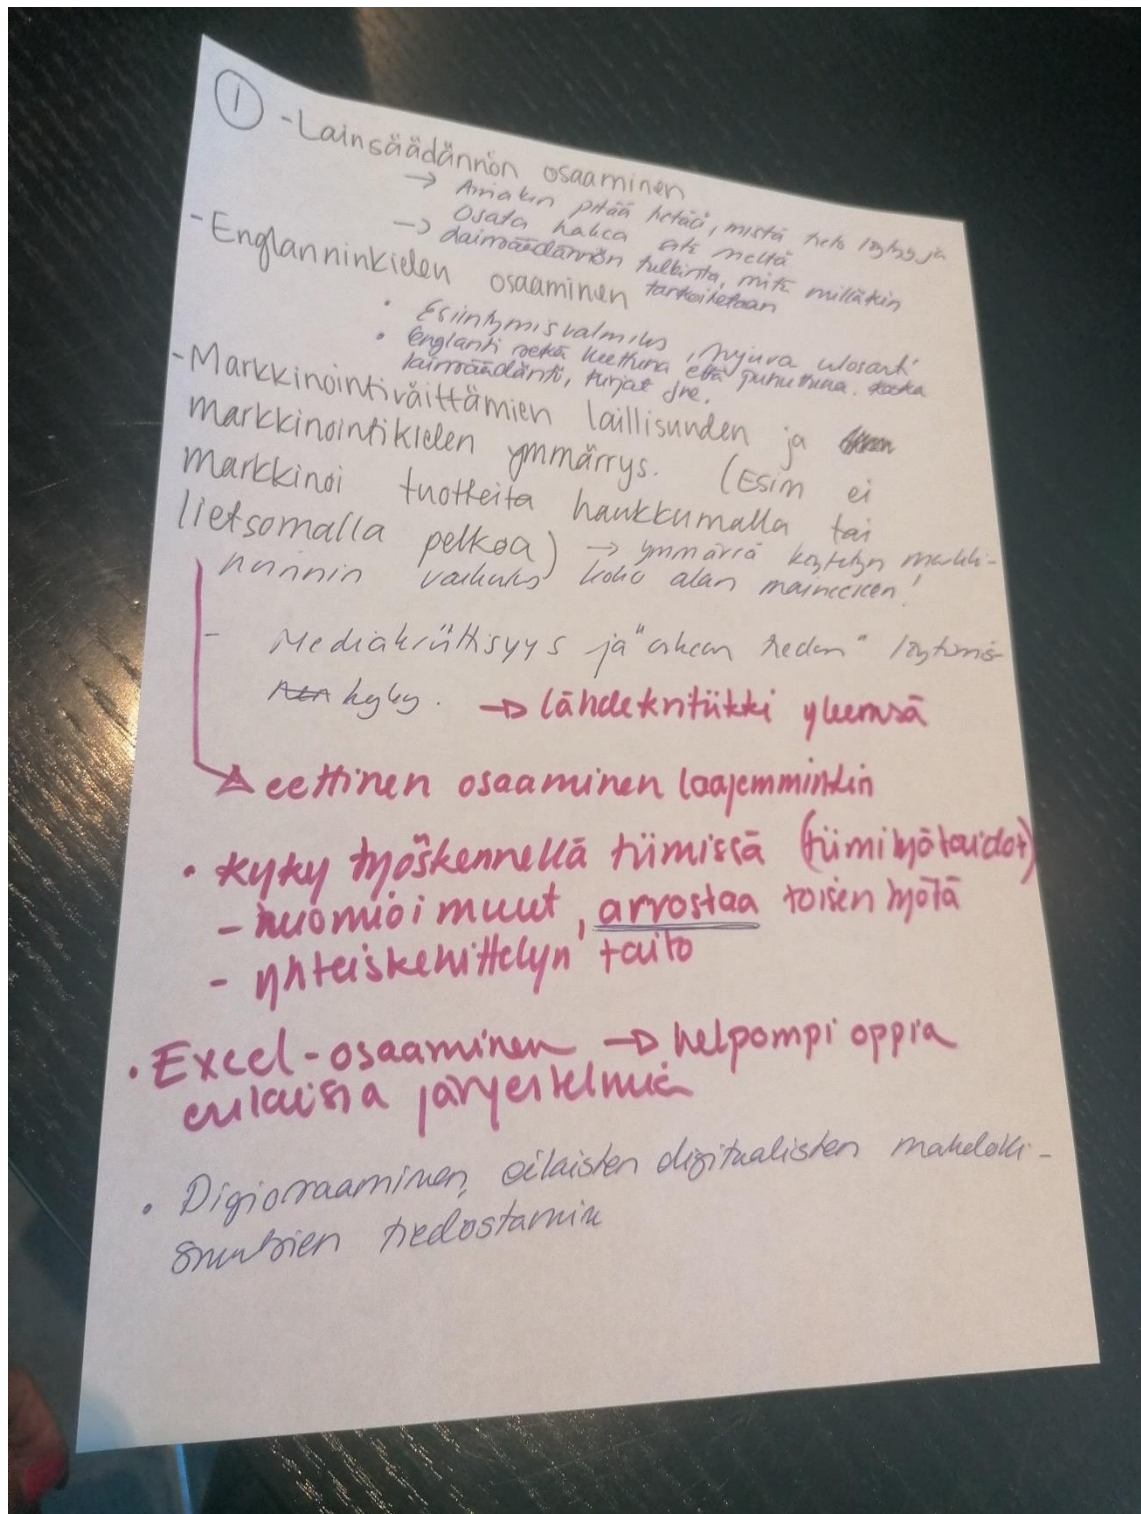 1
- Lainsäädännön osaaminen
→ Ainakin pitää tietää, mistä tieto löytyy ja
osata hakea sitä sieltä
→ Lainsäädännön tulkinta, mitä milläkin
tarkoitetaan
- Englanninkielen osaaminen
• Esiintymisvalmius, sujuva ulosanti
• Englanti sekä luettuna että puhuttuna. koska
lainsäädäntö, kirjat jne.
- Markkinointiväittämien laillisuuden ja
markkinointikielen ymmärrys. (Esim ei
markkinoi tuotteita haukkumalla tai
lietsomalla pelkoa) → ymmärrä markki-
noinnin vaikutus koko alan maineeseen!
- Mediakriittisyys ja "oikean tiedon" löytämis-
kyky. → lähdekritiikki yleensä
→ eettinen osaaminen laajemminkin
• kyky työskennellä tiimissä (tiimityötaidot)
- huomioi muut, arvostaa toisen työtä
- yhteiskehittelyn taito
• Excel-osaaminen → helpompi oppia
erilaisia järjestelmiä
• Digiosaaminen, erilaisten digitaalisten mahdolli-
suuksien tiedostamin